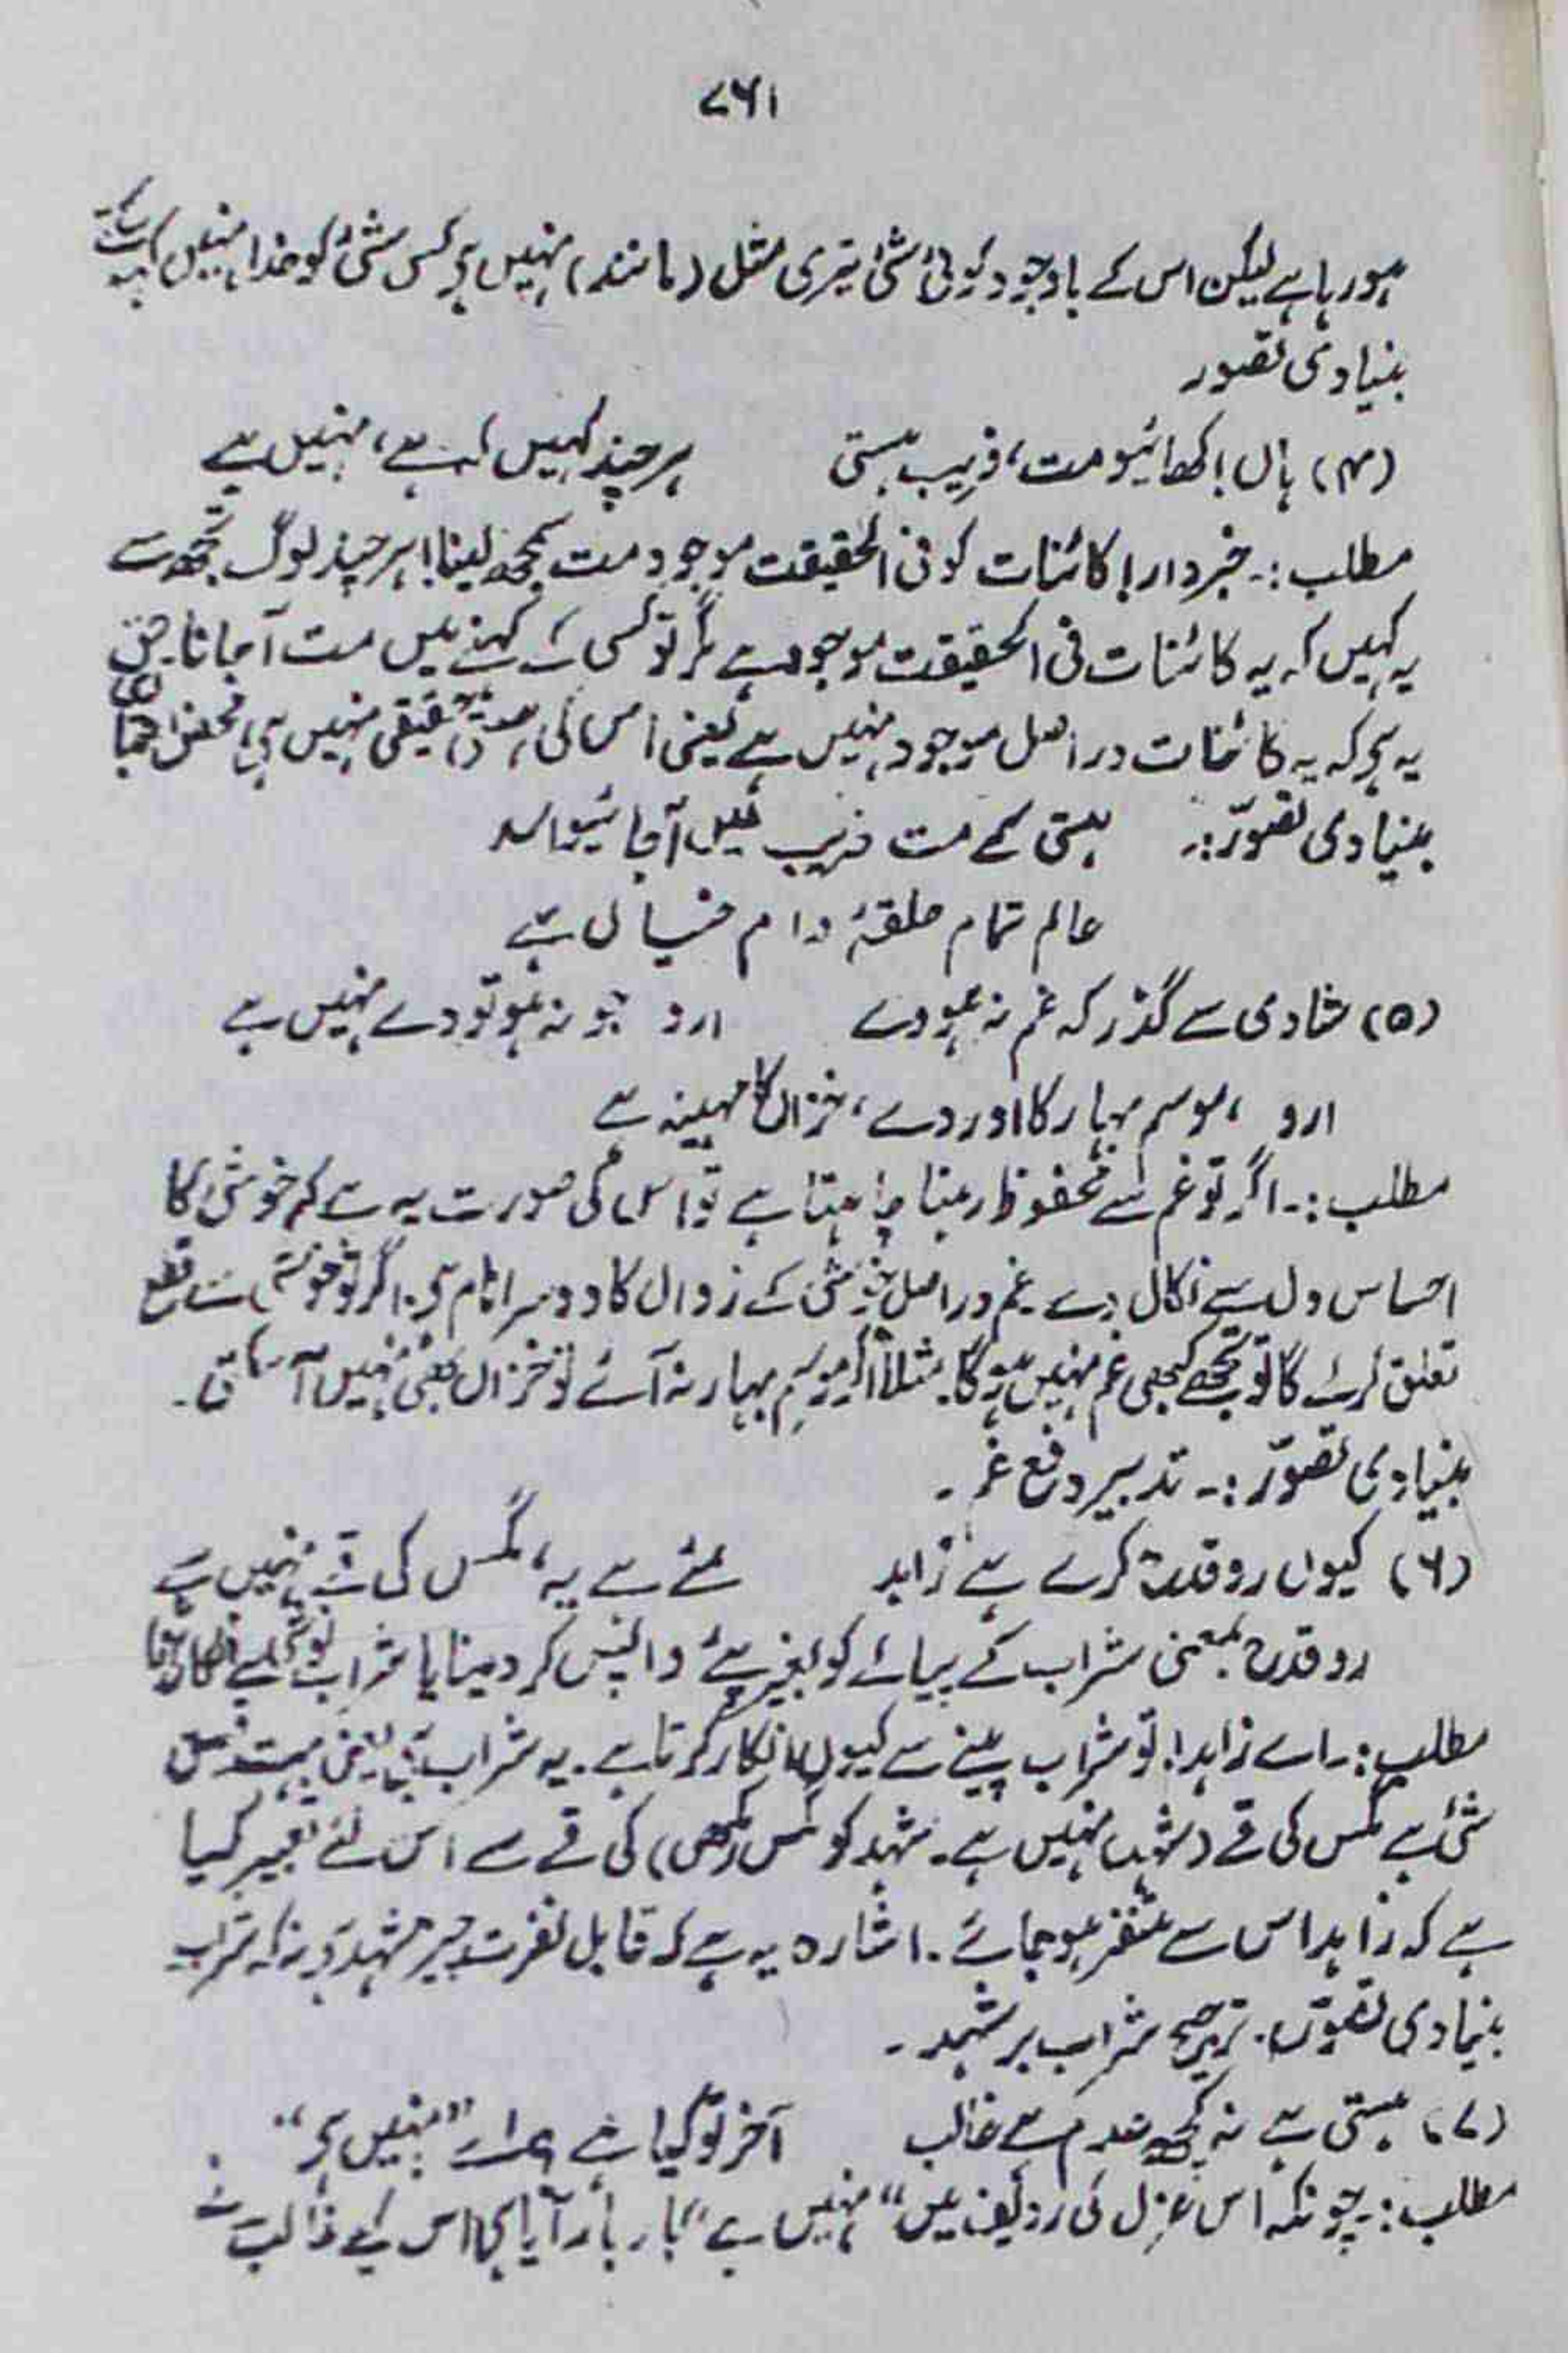 ۷۶۱
ہو رہا ہے لیکن اس کے باوجود کوئی شئ تیری مثل (مانند) نہیں ہے کسی شئ کو خدا نہیں کہہ سکتے
بنیادی تصور
(۴) ہاں! کھائیو مت، فریبِ ہستی ہر چند کہیں کہ ہے، نہیں ہے
مطلب :۔ خبردار! کائنات کو فی الحقیقت موجود مت سمجھ لینا! ہر چند لوگ تجھ سے
یہ کہیں کہ یہ کائنات فی الحقیقت موجود ہے مگر تو کسی کے کہنے میں مت آجانا
یہ ہے کہ یہ کائنات دراصل موجود نہیں ہے یعنی اس کی ہستی حقیقی نہیں ہے، محض
بنیادی تصوّر :۔ ہستی کے مت فریب میں آجائیو اسد
عالم تمام حلقۂ دام خیال ہے
(۵) شادی سے گذر کہ غم نہ ہووے اردو جو نہ ہو تو دے نہیں ہے
اردو، موسم بہار کا اور دے، خزاں کا مہینہ ہے
مطلب :۔ اگر تو غم سے محفوظ رہنا چاہتا ہے تو اس کی صورت یہ ہے کہ خوشی کا
احساس دل سے نکال دے۔ غم دراصل خوشی کے زوال کا دوسرا نام ہے۔ اگر تو خوشی سے قطع
تعلق کرے گا تو تجھے کبھی غم نہیں ہوگا۔ مثلاً اگر موسم بہار نہ آئے تو خزاں بھی نہیں آسکتی۔
بنیادی تصوّر :۔ تدبیر دفع غم۔
(۶) کیوں رد قدح کرے ہے زاہد مئے ہے یہ، مگس کی قے نہیں ہے
رد قدح بمعنی شراب کے پیالے کو بغیر پئے واپس کر دینا یا شراب نوشی سے
مطلب :۔ اے زاہد! تو شراب پینے سے کیوں انکار کرتا ہے۔ یہ شراب ہے یعنی بہت نفیس
شئ ہے مگس کی قے (شہد) نہیں ہے۔ شہد کو مگس (مکھی) کی قے سے اس لئے تعبیر کیا
ہے کہ زاہد اس سے متنفر ہو جائے۔ اشارہ یہ ہے کہ قابل نفرت چیز شہد ہے نہ کہ شراب
بنیادی تصوّر۔ ترجیح شراب بر شہد۔
(۷) ہستی ہے نہ کچھ عدم ہے غالب آخر تو کیا ہے اے "نہیں ہے"
مطلب :۔ چونکہ اس غزل کی ردیف میں "نہیں ہے" بار بار آیا ہے اس لیے غالب نے